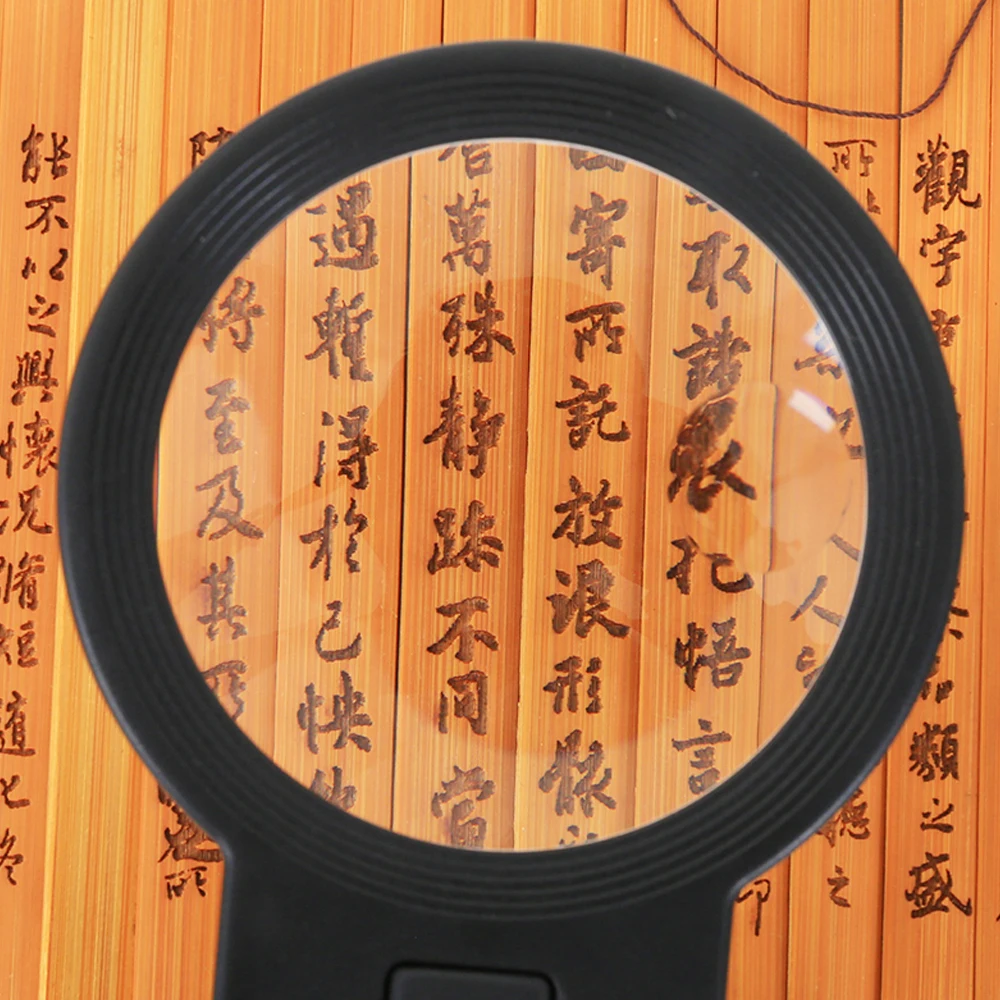 觀宇 類之盛
所 聽之
人
取諸懷抱悟言
寄所託放浪形骸
萬殊靜躁不同當
遇暫得於己快
將至及其所
能不以之興懷況脩短隨化終